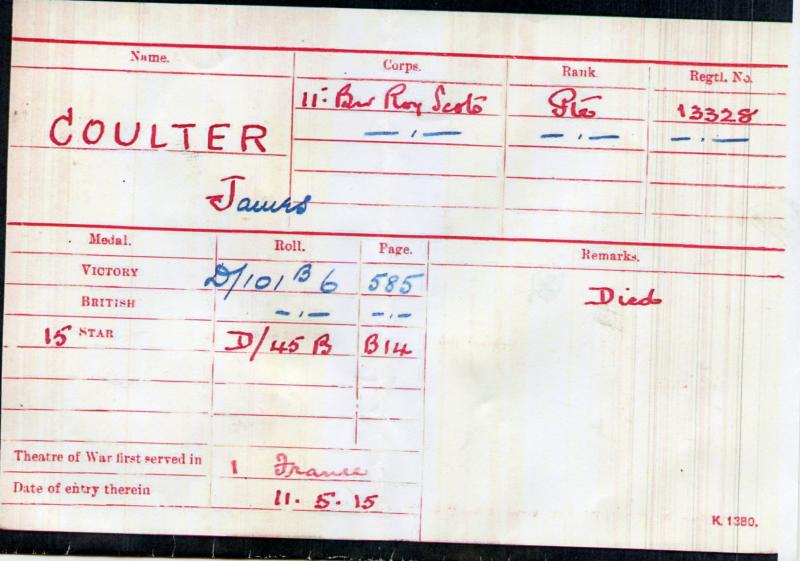 Name. Corps. Rank. Regtl. No.
11: Bn Roy Scots Pte 13328
COULTER —,— —,— —,—
James
Medal. Roll. Page. Remarks.
VICTORY D/101 B 6 585
BRITISH —,— —,— Died
15 STAR D/45 B B14
Theatre of War first served in 1 France
Date of entry therein 11. 5. 15
K. 1380.